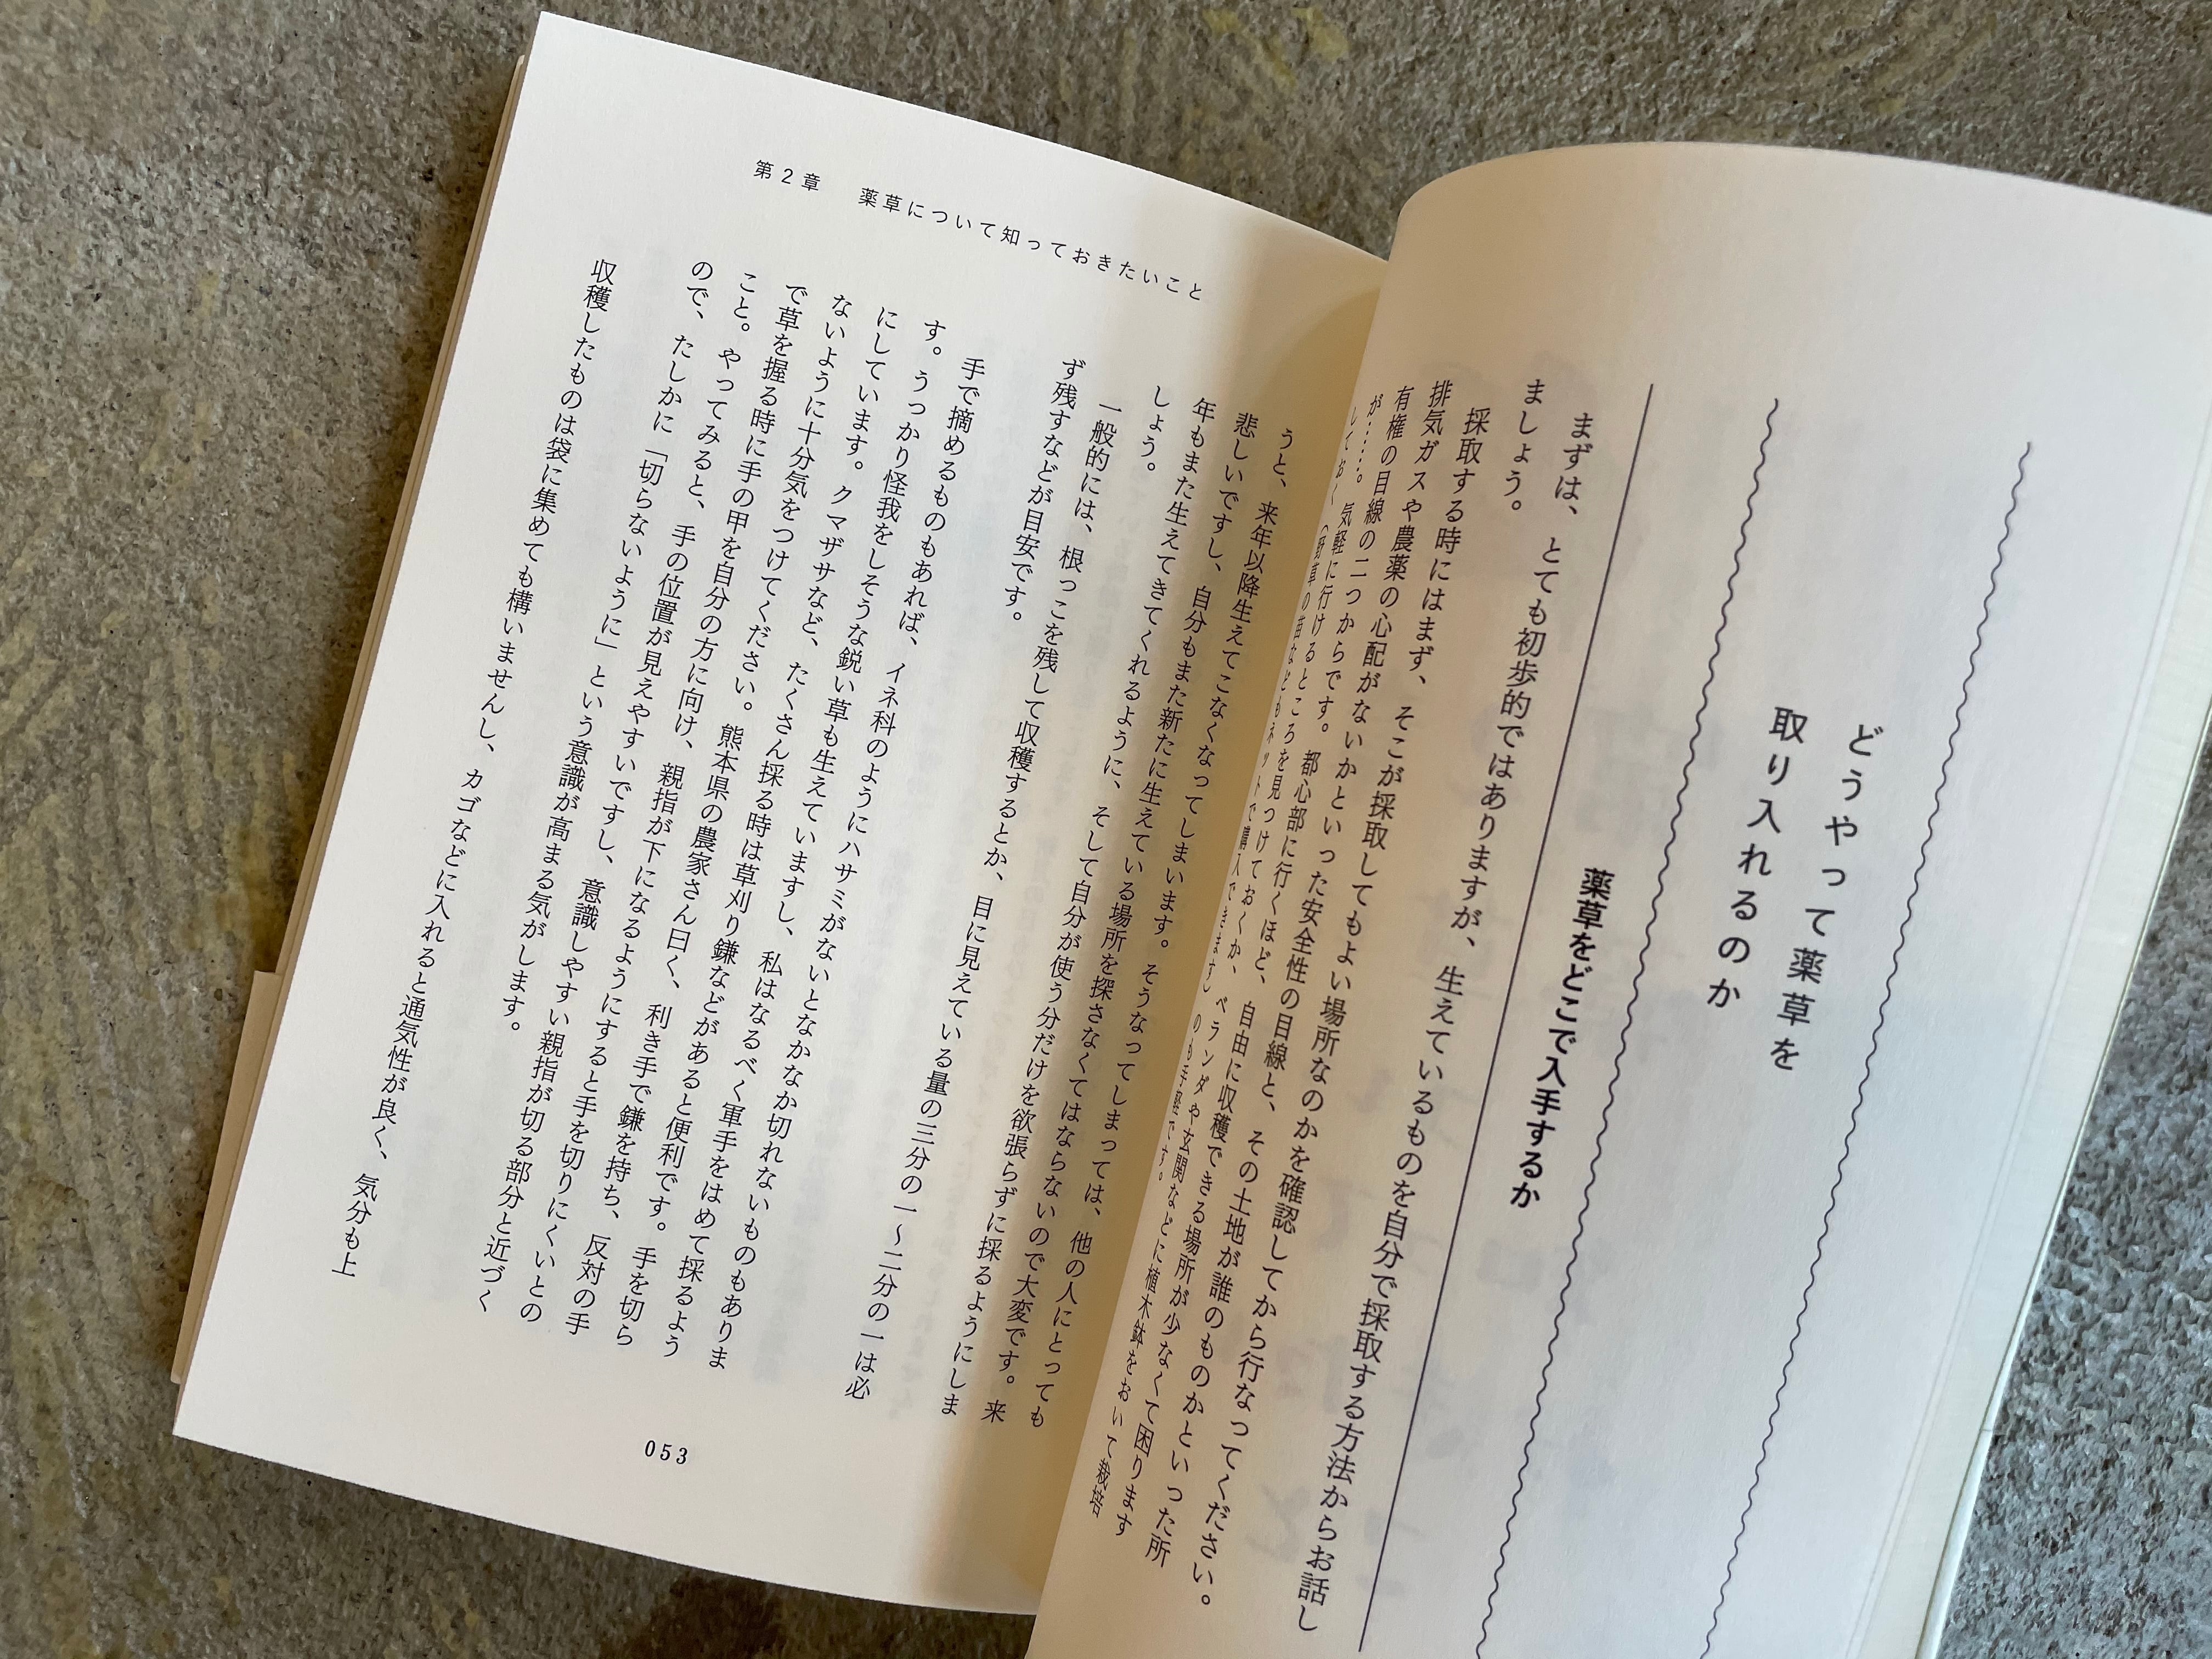 どうやって薬草を
取り入れるのか
薬草をどこで入手するか
まずは、とても初歩的ではありますが、生えているものを自分で採取する方法からお話し
ましょう。
採取する時にはまず、そこが採取してもよい場所なのかを確認してから行なってください。
排気ガスや農薬の心配がないかといった安全性の目線と、その土地が誰のものかといった所
有権の目線の二つからです。都心部に行くほど、自由に収穫できる場所が少なくて困ります
が……。気軽に行けるところを見つけておくか、ベランダや玄関などに植木鉢をおいて栽培
しておく（野草の苗などもネットで購入できます）のも手軽です。
うと、来年以降生えてこなくなってしまいます。そうなってしまっては、他の人にとっても
悲しいですし、自分もまた新たに生えている場所を探さなくてはならないので大変です。来
年もまた生えてきてくれるように、そして自分が使う分だけを欲張らずに採るようにしま
しょう。
一般的には、根っこを残して収穫するとか、目に見えている量の三分の一〜二分の一は必
ず残すなどが目安です。
手で摘めるものもあれば、イネ科のようにハサミがないとなかなか切れないものもありま
す。うっかり怪我をしそうな鋭い草も生えていますし、私はなるべく軍手をはめて採るよう
にしています。クマザサなど、たくさん採る時は草刈り鎌などがあると便利です。手を切ら
ないように十分気をつけてください。熊本県の農家さん曰く、利き手で鎌を持ち、反対の手
で草を握る時に手の甲を自分の方に向け、親指が下になるようにすると手を切りにくいとの
こと。やってみると、手の位置が見えやすいですし、意識しやすい親指が切る部分と近づく
ので、たしかに「切らないように」という意識が高まる気がします。
収穫したものは袋に集めても構いませんし、カゴなどに入れると通気性が良く、気分も上
第2章　薬草について知っておきたいこと
053